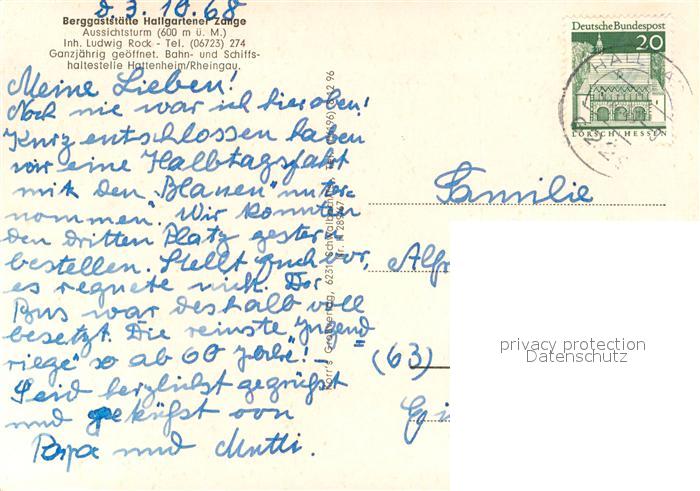 d 3. 10. 68
Berggaststätte Hallgartener Zange
Aussichtsturm (600 m ü. M.)
Inh. Ludwig Rock - Tel. (06723) 274
Ganzjährig geöffnet. Bahn- und Schiffs-
haltestelle Hattenheim/Rheingau.
Meine Lieben!
Noch nie war ich hier oben!
Kurz entschlossen haben
wir eine Halbtagsfahrt
mit den "Blauen" unter-
nommen". Wir konnten
den dritten Platz gestern
bestellen. Stellt euch vor,
es regnete nicht. Der
Bus war deshalb voll
besetzt. Die reinste "Jugend=
riege" so ab 60 Jahre"! -
Seid herzlichst gegrüßt
und geküßt von
Papa und Mutti.
Deutsche Bundespost
20
LORSCH/HESSEN
HALLGA
Familie
Alfr
(63)
privacy protection
Datenschutz